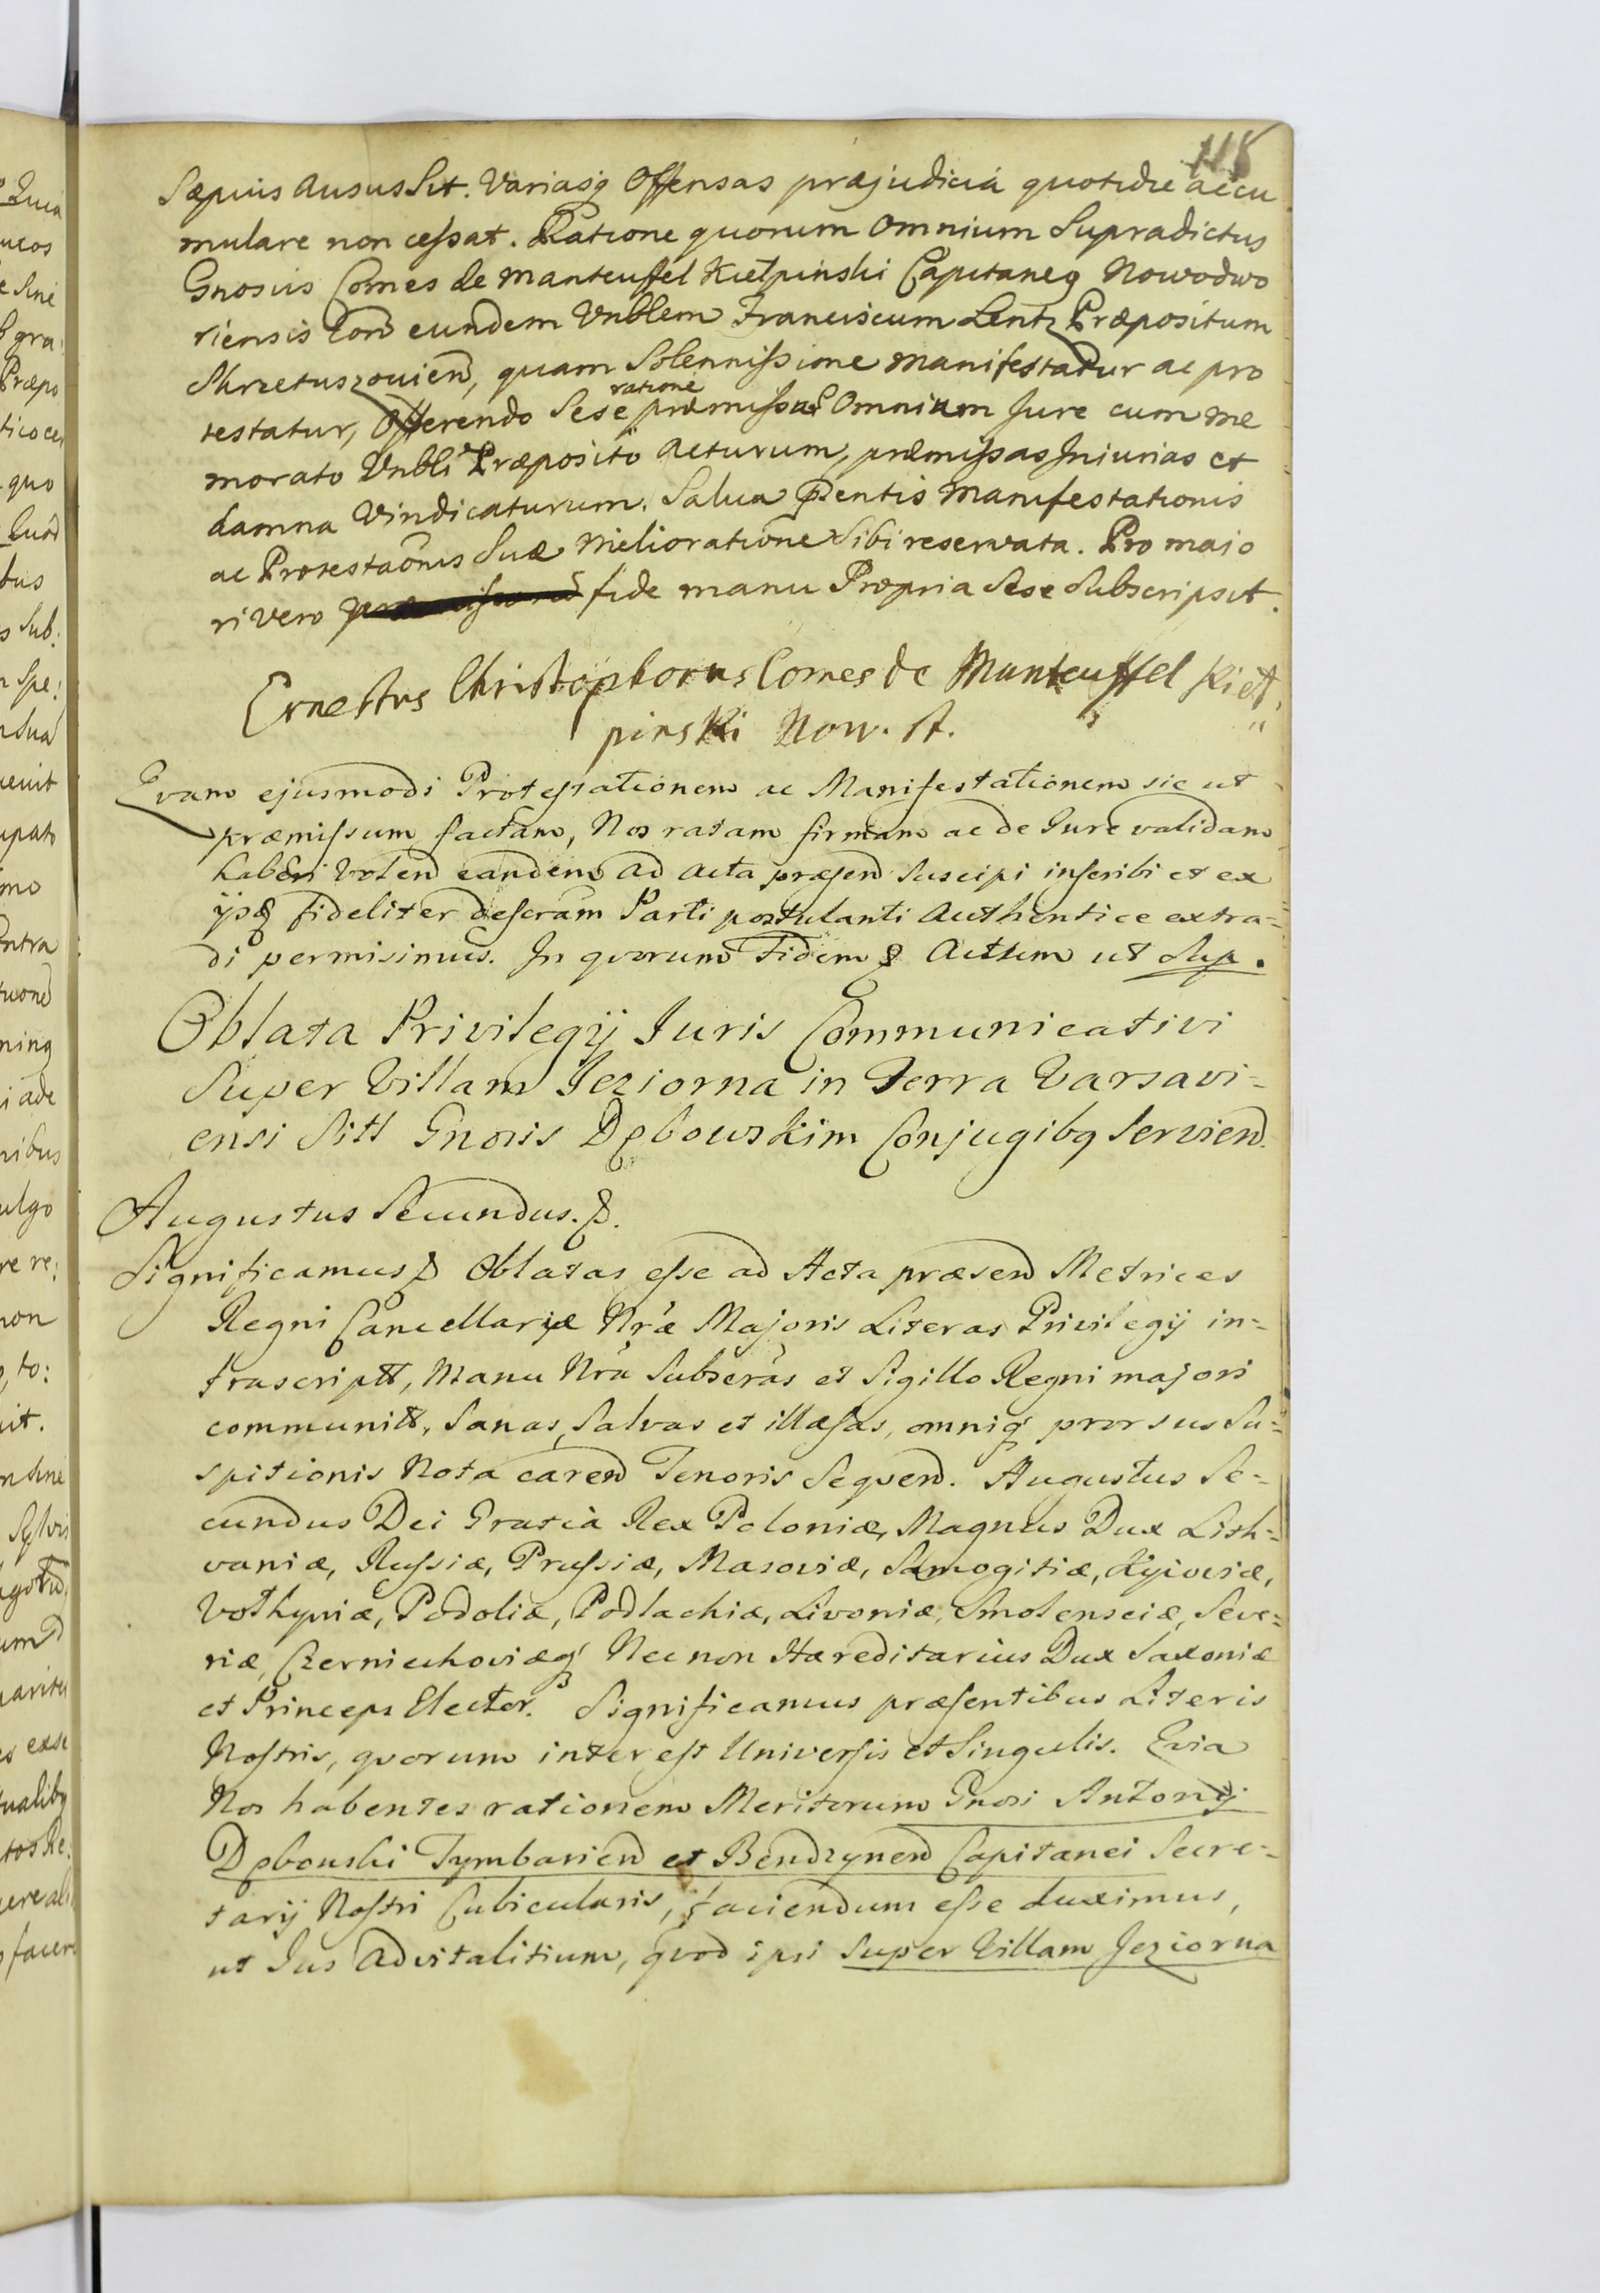 118
Sæpius Ausus Sit. Variasq Offensas præjudicia quotidie accu
mulare non cessat. Ratione quorum Omnium Supradictus
Gnosus Comes de Manteuffel Kiełpinski Capitaneq Nowodwo
riensis Con eundem Vnblem Franciscum Lentz Præpositum
Skrzetuszouien, quam Solennissime manifestatur ac pro
testatur, Offerendo Sese ratione præmissor Omnium Jure cum me
morato Vnbli Præposito Acturum, præmissas Iniurias et
damna Vindicaturum. Salua pntis Manifestationis
ac Protestaonis Suæ Melioratione Sibi reservata. Pro majo
ri vero fide manu Propria Sese Subscripsit.
Ernestus Christophorus Comes de Manteuffel Kieł,
pinski Now. St.
Qvam ejusmodi Protestationem ac Manifestationem sic ut
præmissum factam, Nos ratam firmam ac de Iure validam
haberi volen eandem ad Acta præsen Suscipi inscribi et ex
ijsq fideliter descram Parti postulanti Authentice extra=
di permisimus. In qvorum Fidem & Acttum ut Sup.
Oblata Privilegij Iuris Communicativi
Super Villam Jeziorna in Terra Varsavi=
ensi Sitt Gnosis Dębowskim Conjugibq Servien.
Augustus Secundus. &.
Significamus & Oblatas esse ad Acta præsen Metrices
Regni Cancellariæ Nræ Majoris Literas Privilegij in=
frascriptt, Manu Nra Subscras et Sigillo Regni majori
communitt, Sanas, Salvas et illæsas, omniq prorsus Su=
spitionis Nota caren Tenoris Seqven. Augustus Se=
cundus Dei Gratia Rex Poloniæ, Magnus Dux Lith=
vaniæ, Russiæ, Prussiæ, Masoviæ, Samogitiæ, Kyioviæ,
Volhyniæ, Podoliæ, Podlachiæ, Livoniæ, Smolensciæ, Seve=
riæ, Czerniechoviæq Nec non Hæreditarius Dux Saxoniæ
et Princeps Elector. Significamus præsentibus Literis
Nostris, qvorum interest Universis et Singulis. Qvia
Nos habentes rationem Meritorum Gnosi Antonij
Dębowski Tymbarien et Bendzynen Capitanei Secre=
tarij Nostri Cubicularis, faciendum esse duximus,
ut Ius Advitalitium, qvod ipsi Super Villam Jeziorna